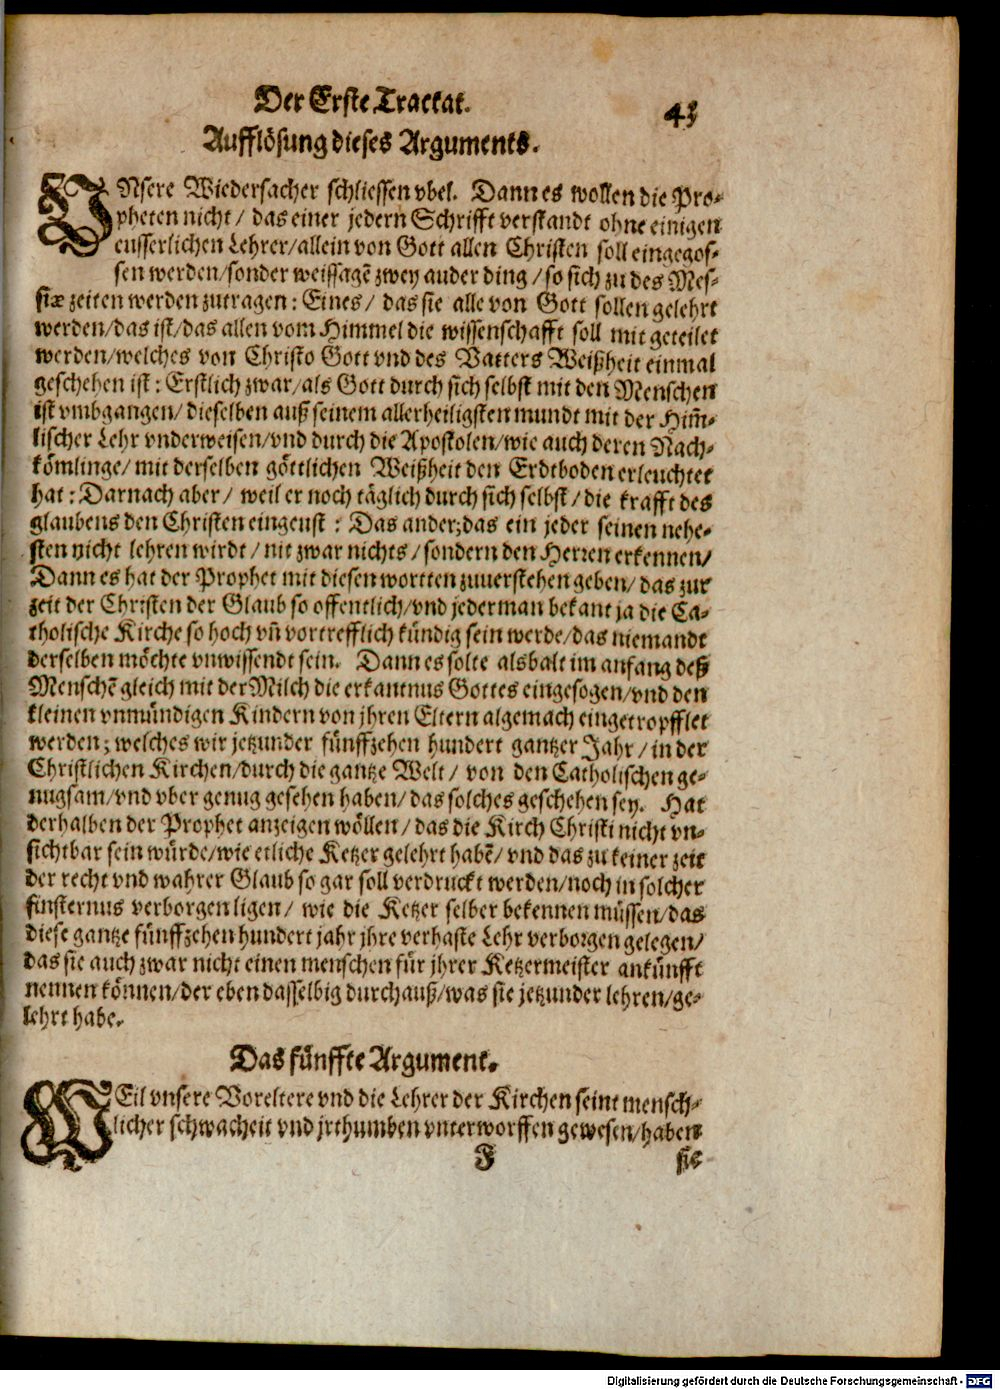 Der Erste Tractat.
43
Aufflösung dieses Arguments.
VNsere Wiedersacher schliessen vbel. Dann es wollen die Pro-
pheten nicht / das einer jedern Schrifft verstandt ohne einigen
eusserlichen Lehrer/allein von Gott allen Christen soll eingegos-
sen werden/sonder weissagẽ zwey ander ding / so sich zu des Mes-
siæ zeiten werden zutragen : Eines / das sie alle von Gott sollen gelehrt
werden/das ist/das allen vom Himmel die wissenschafft soll mit geteilet
werden/welches von Christo Gott vnd des Vatters Weißheit einmal
geschehen ist : Erstlich zwar/als Gott durch sich selbst mit den Menschen
ist vmbgangen/ dieselben auß seinem allerheiligsten mundt mit der Him̃-
lischer Lehr vnderweisen/vnd durch die Apostolen/wie auch deren Nach-
kömlinge/ mit derselben göttlichen Weißheit den Erdtboden erleuchtet
hat : Darnach aber / weil er noch täglich durch sich selbst / die krafft des
glaubens den Christen eingeust : Das ander; das ein jeder seinen nehe-
sten nicht lehren wirdt / nit zwar nichts / sondern den Herren erkennen/
Dann es hat der Prophet mit diesen wortten zuuerstehen geben/ das zur
zeit der Christen der Glaub so offentlich/vnd jederman bekant ja die Ca-
tholische Kirche so hoch vñ vortrefflich kündig sein werde/das niemandt
derselben möchte vnwissendt sein. Dann es solte alsbalt im anfang deß
Menschẽ gleich mit der Milch die erkantnus Gottes eingesogen/vnd den
kleinen vnmündigen Kindern von jhren Eltern algemach eingetropfflet
werden; welches wir jetzunder fünffzehen hundert gantzer Jahr / in der
Christlichen Kirchen/durch die gantze Welt / von den Catholischen ge-
nugsam/vnd vber genug gesehen haben/ das solches geschehen sey. Hat
derhalben der Prophet anzeigen wöllen / das die Kirch Christi nicht vn-
sichtbar sein würde/wie etliche Ketzer gelehrt habẽ/ vnd das zu keiner zeit
der recht vnd wahrer Glaub so gar soll verdruckt werden/noch in solcher
finsternus verborgen ligen / wie die Ketzer selber bekennen müssen/das
diese gantze fünffzehen hundert jahr jhre verhaste Lehr verborgen gelegen/
das sie auch zwar nicht einen menschen für jhrer Ketzermeister ankünfft
nennen können/der eben dasselbig durchauß/was sie jetzunder lehren/ge-
lehrt habe.
Das fünffte Argument.
WEil vnsere Voreltere vnd die Lehrer der Kirchen seint mensch-
licher schwacheit vnd jrthumben vnterworffen gewesen/haben
F
sie
Digitalisierung gefördert durch die Deutsche Forschungsgemeinschaft - DFG